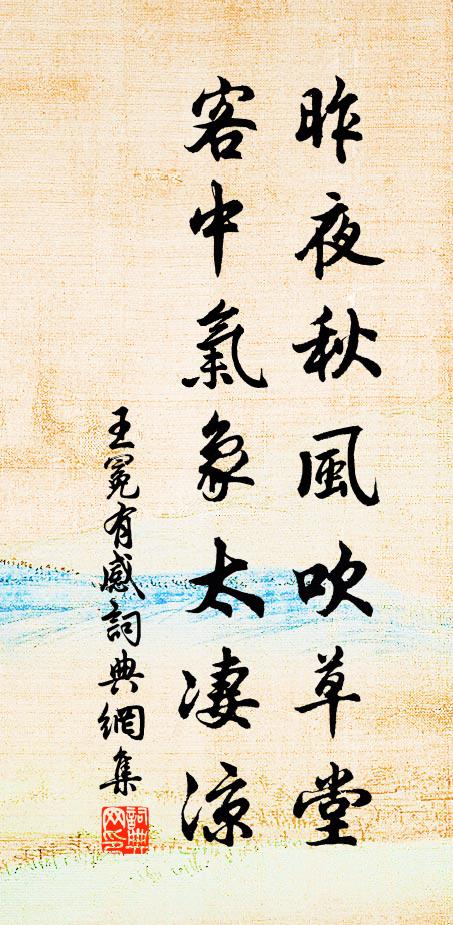 昨夜秋風吹草堂
客中氣象太淒涼
王冕有感詞典網集
詞典網印